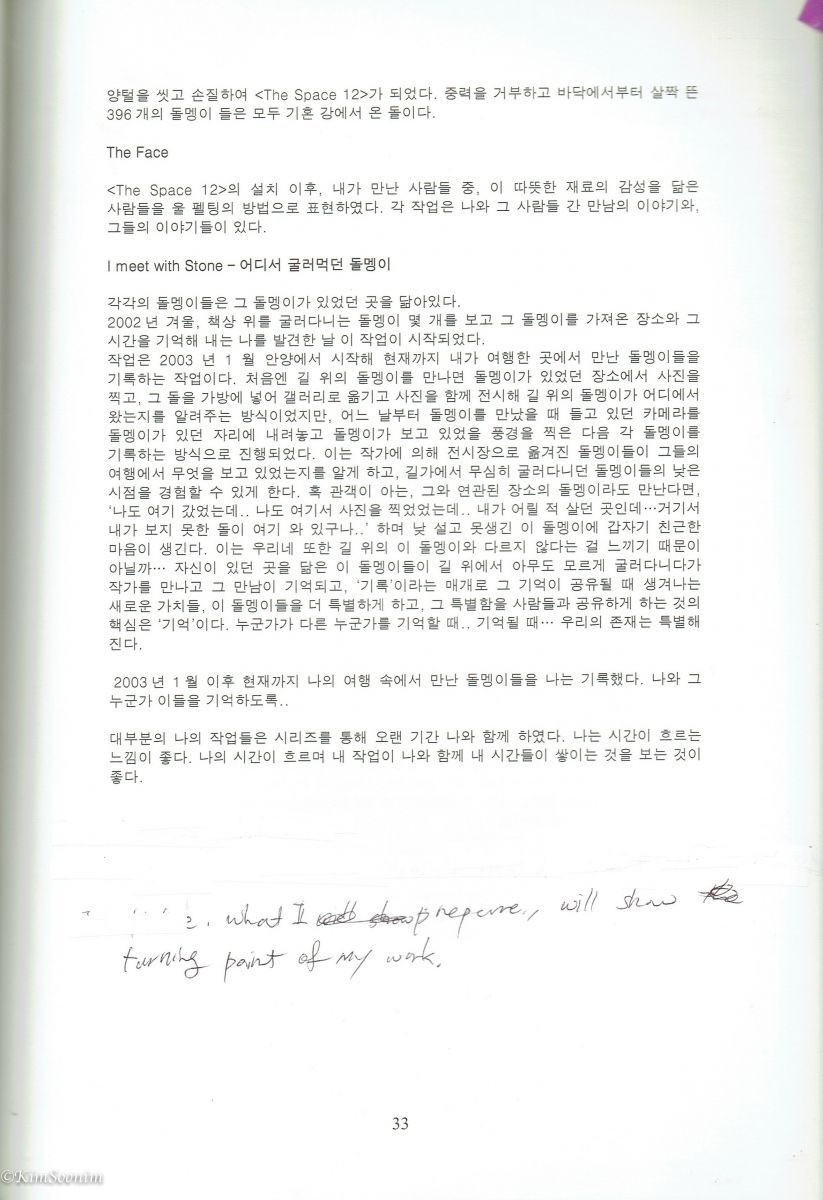 양털을 씻고 손질하여 <The Space 12>가 되었다. 중력을 거부하고 바닥에서부터 살짝 뜬
396개의 돌멩이 들은 모두 기혼 강에서 온 돌이다.
The Face
<The Space 12>의 설치 이후, 내가 만난 사람들 중, 이 따뜻한 재료의 감성을 닮은
사람들을 울 펠팅의 방법으로 표현하였다. 각 작업은 나와 그 사람들 간 만남의 이야기와,
그들의 이야기들이 있다.
I meet with Stone – 어디서 굴러먹던 돌멩이
각각의 돌멩이들은 그 돌멩이가 있었던 곳을 닮아있다.
2002년 겨울, 책상 위를 굴러다니는 돌멩이 몇 개를 보고 그 돌멩이를 가져온 장소와 그
시간을 기억해 내는 나를 발견한 날 이 작업이 시작되었다.
작업은 2003 년 1 월 안양에서 시작해 현재까지 내가 여행한 곳에서 만난 돌멩이들을
기록하는 작업이다. 처음엔 길 위의 돌멩이를 만나면 돌멩이가 있었던 장소에서 사진을
찍고, 그 돌을 가방에 넣어 갤러리로 옮기고 사진을 함께 전시해 길 위의 돌멩이가 어디에서
왔는지를 알려주는 방식이었지만, 어느 날부터 돌멩이를 만났을 때 들고 있던 카메라를
돌멩이가 있던 자리에 내려놓고 돌멩이가 보고 있었을 풍경을 찍은 다음 각 돌멩이를
기록하는 방식으로 진행되었다. 이는 작가에 의해 전시장으로 옮겨진 돌멩이들이 그들의
여행에서 무엇을 보고 있었는지를 알게 하고, 길가에서 무심히 굴러다니던 돌멩이들의 낮은
시점을 경험할 수 있게 한다. 혹 관객이 아는, 그와 연관된 장소의 돌멩이라도 만난다면,
‘나도 여기 갔었는데.. 나도 여기서 사진을 찍었었는데.. 내가 어릴 적 살던 곳인데…거기서
내가 보지 못한 돌이 여기 와 있구나..’ 하며 낯 설고 못생긴 이 돌멩이에 갑자기 친근한
마음이 생긴다. 이는 우리네 또한 길 위의 이 돌멩이와 다르지 않다는 걸 느끼기 때문이
아닐까… 자신이 있던 곳을 닮은 이 돌멩이들이 길 위에서 아무도 모르게 굴러다니다가
작가를 만나고 그 만남이 기억되고, ‘기록’이라는 매개로 그 기억이 공유될 때 생겨나는
새로운 가치들, 이 돌멩이들을 더 특별하게 하고, 그 특별함을 사람들과 공유하게 하는 것의
핵심은 ‘기억’이다. 누군가가 다른 누군가를 기억할 때.. 기억될 때… 우리의 존재는 특별해
진다.
2003년 1월 이후 현재까지 나의 여행 속에서 만난 돌멩이들을 나는 기록했다. 나와 그
누군가 이들을 기억하도록..
대부분의 나의 작업들은 시리즈를 통해 오랜 기간 나와 함께 하였다. 나는 시간이 흐르는
느낌이 좋다. 나의 시간이 흐르며 내 작업이 나와 함께 내 시간들이 쌓이는 것을 보는 것이
좋다.
2. what I prepare, will show
turning point of my work.
33
©KimSoonim